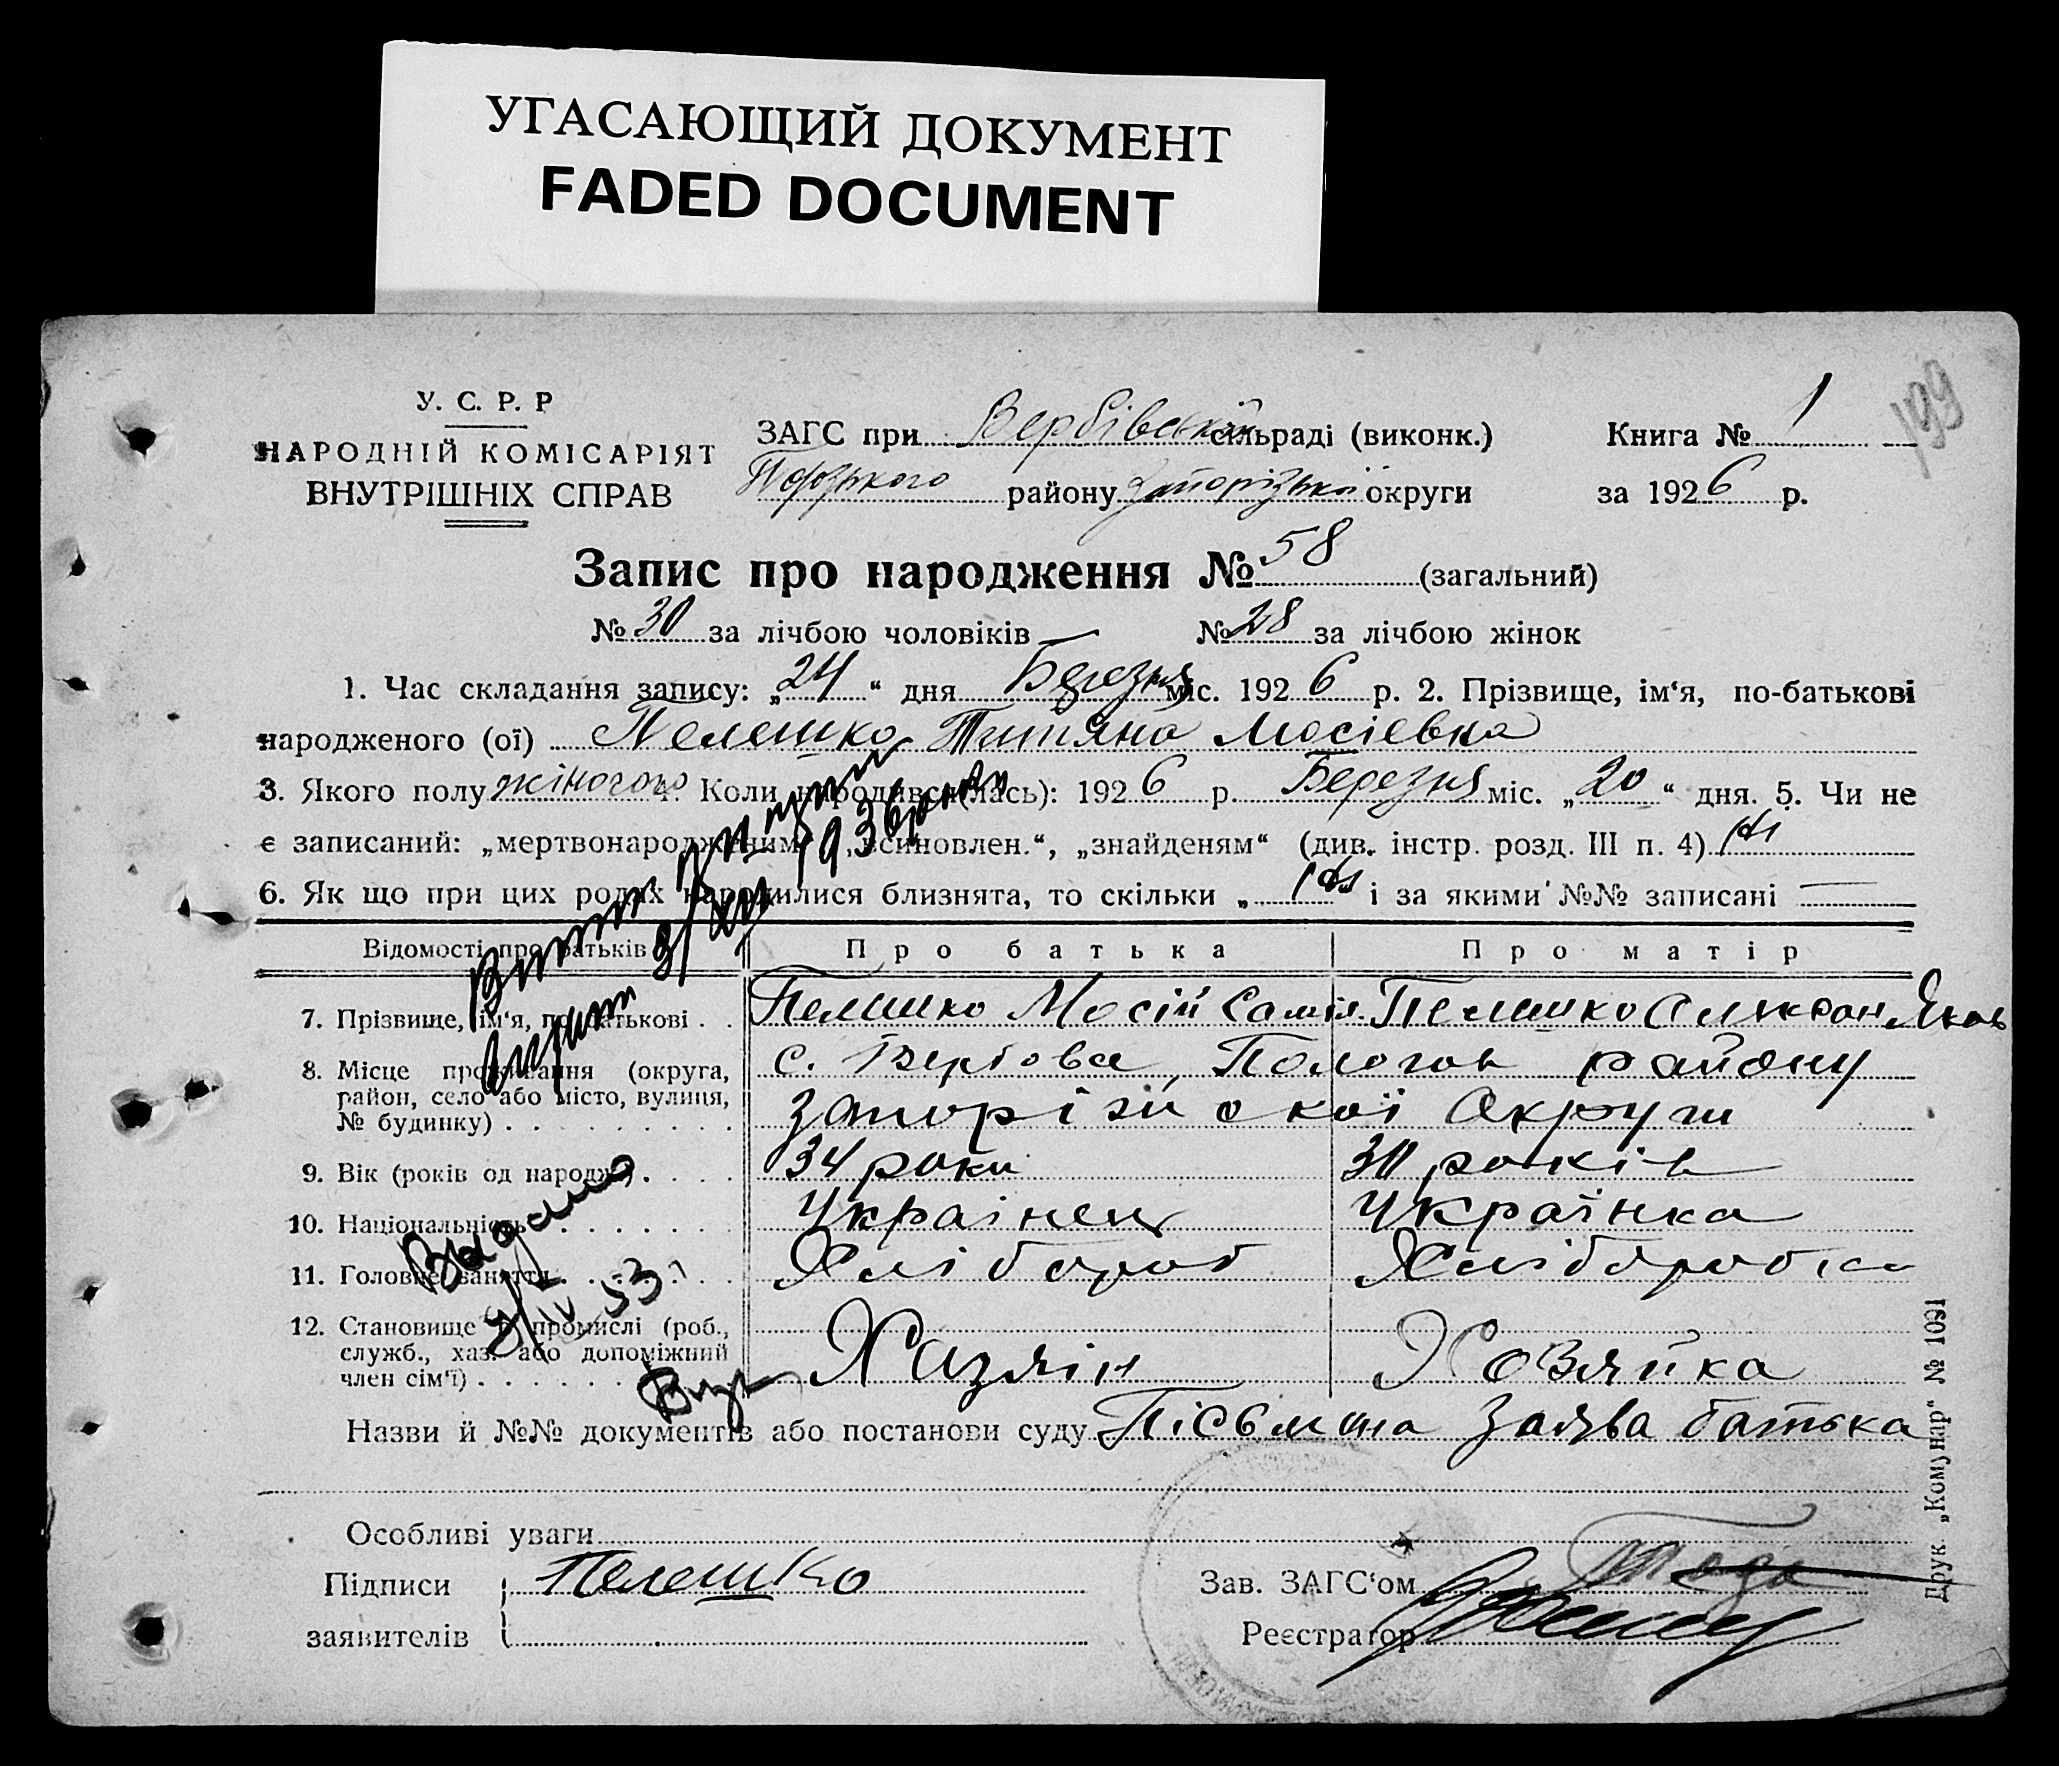 УГАСАЮЩИЙ ДОКУМЕНТ
FADED DOCUMENT
199
У. С. Р. Р
НАРОДНІЙ КОМІСАРІЯТ
ВНУТРІШНІХ СПРАВ
ЗАГС при Вербівській сільраді (виконк.)
району Запорізької округи
Книга № 1
за 1926 р.
Запис про народження № 58 (загальний)
№ 30 за лічбою чоловіків № 28 за лічбою жінок
1. Час складання запису: „24“ дня Березня міс. 1926 р. 2. Прізвище, ім‘я, по-батькові
народженого (ої) Пелешко Титяна Мосіевна
3. Якого полу жіночого 4. Коли народився(лась): 1926 р. Березня міс. „20“ дня. 5. Чи не
є записаний: „мертвонародженим“, „всиновлен.“, „знайденям“ (див. інстр. розд. III п. 4)
6. Як що при цих родах народилися близнята, то скільки „ “ і за якими №№ записані —
Відомості про батьків
Про батька
Про матір
7. Прізвище, ім‘я, по батькові . .
Пелешко Мосій Самій. Пелешко Яков
8. Місце проживання (округа,
район, село або місто, вулиця,
№ будинку) . . . . . . . . .
с. Вербова, Пологов району
Запоріжської Округи
9. Вік (років од народж.) . . . .
34 роки
30 років
10. Національність . . . . . . .
Українец
Українка
11. Головне заняття . . . . . . .
Хлібороб
Хліборобка
12. Становище в промислі (роб.,
служб., хаз. або допоміжний
член сім‘ї) . . . . . .
Хазяін
Хозяйка
Видано
8/IV 53.
1936 року
Назви й №№ документів або постанови суду Пісьмена Заява батька
Особливі уваги
Підписи
заявителів
Пелешко
Зав. ЗАГС‘ом
Реєстратор
Друк. „Комунар“ № 1091